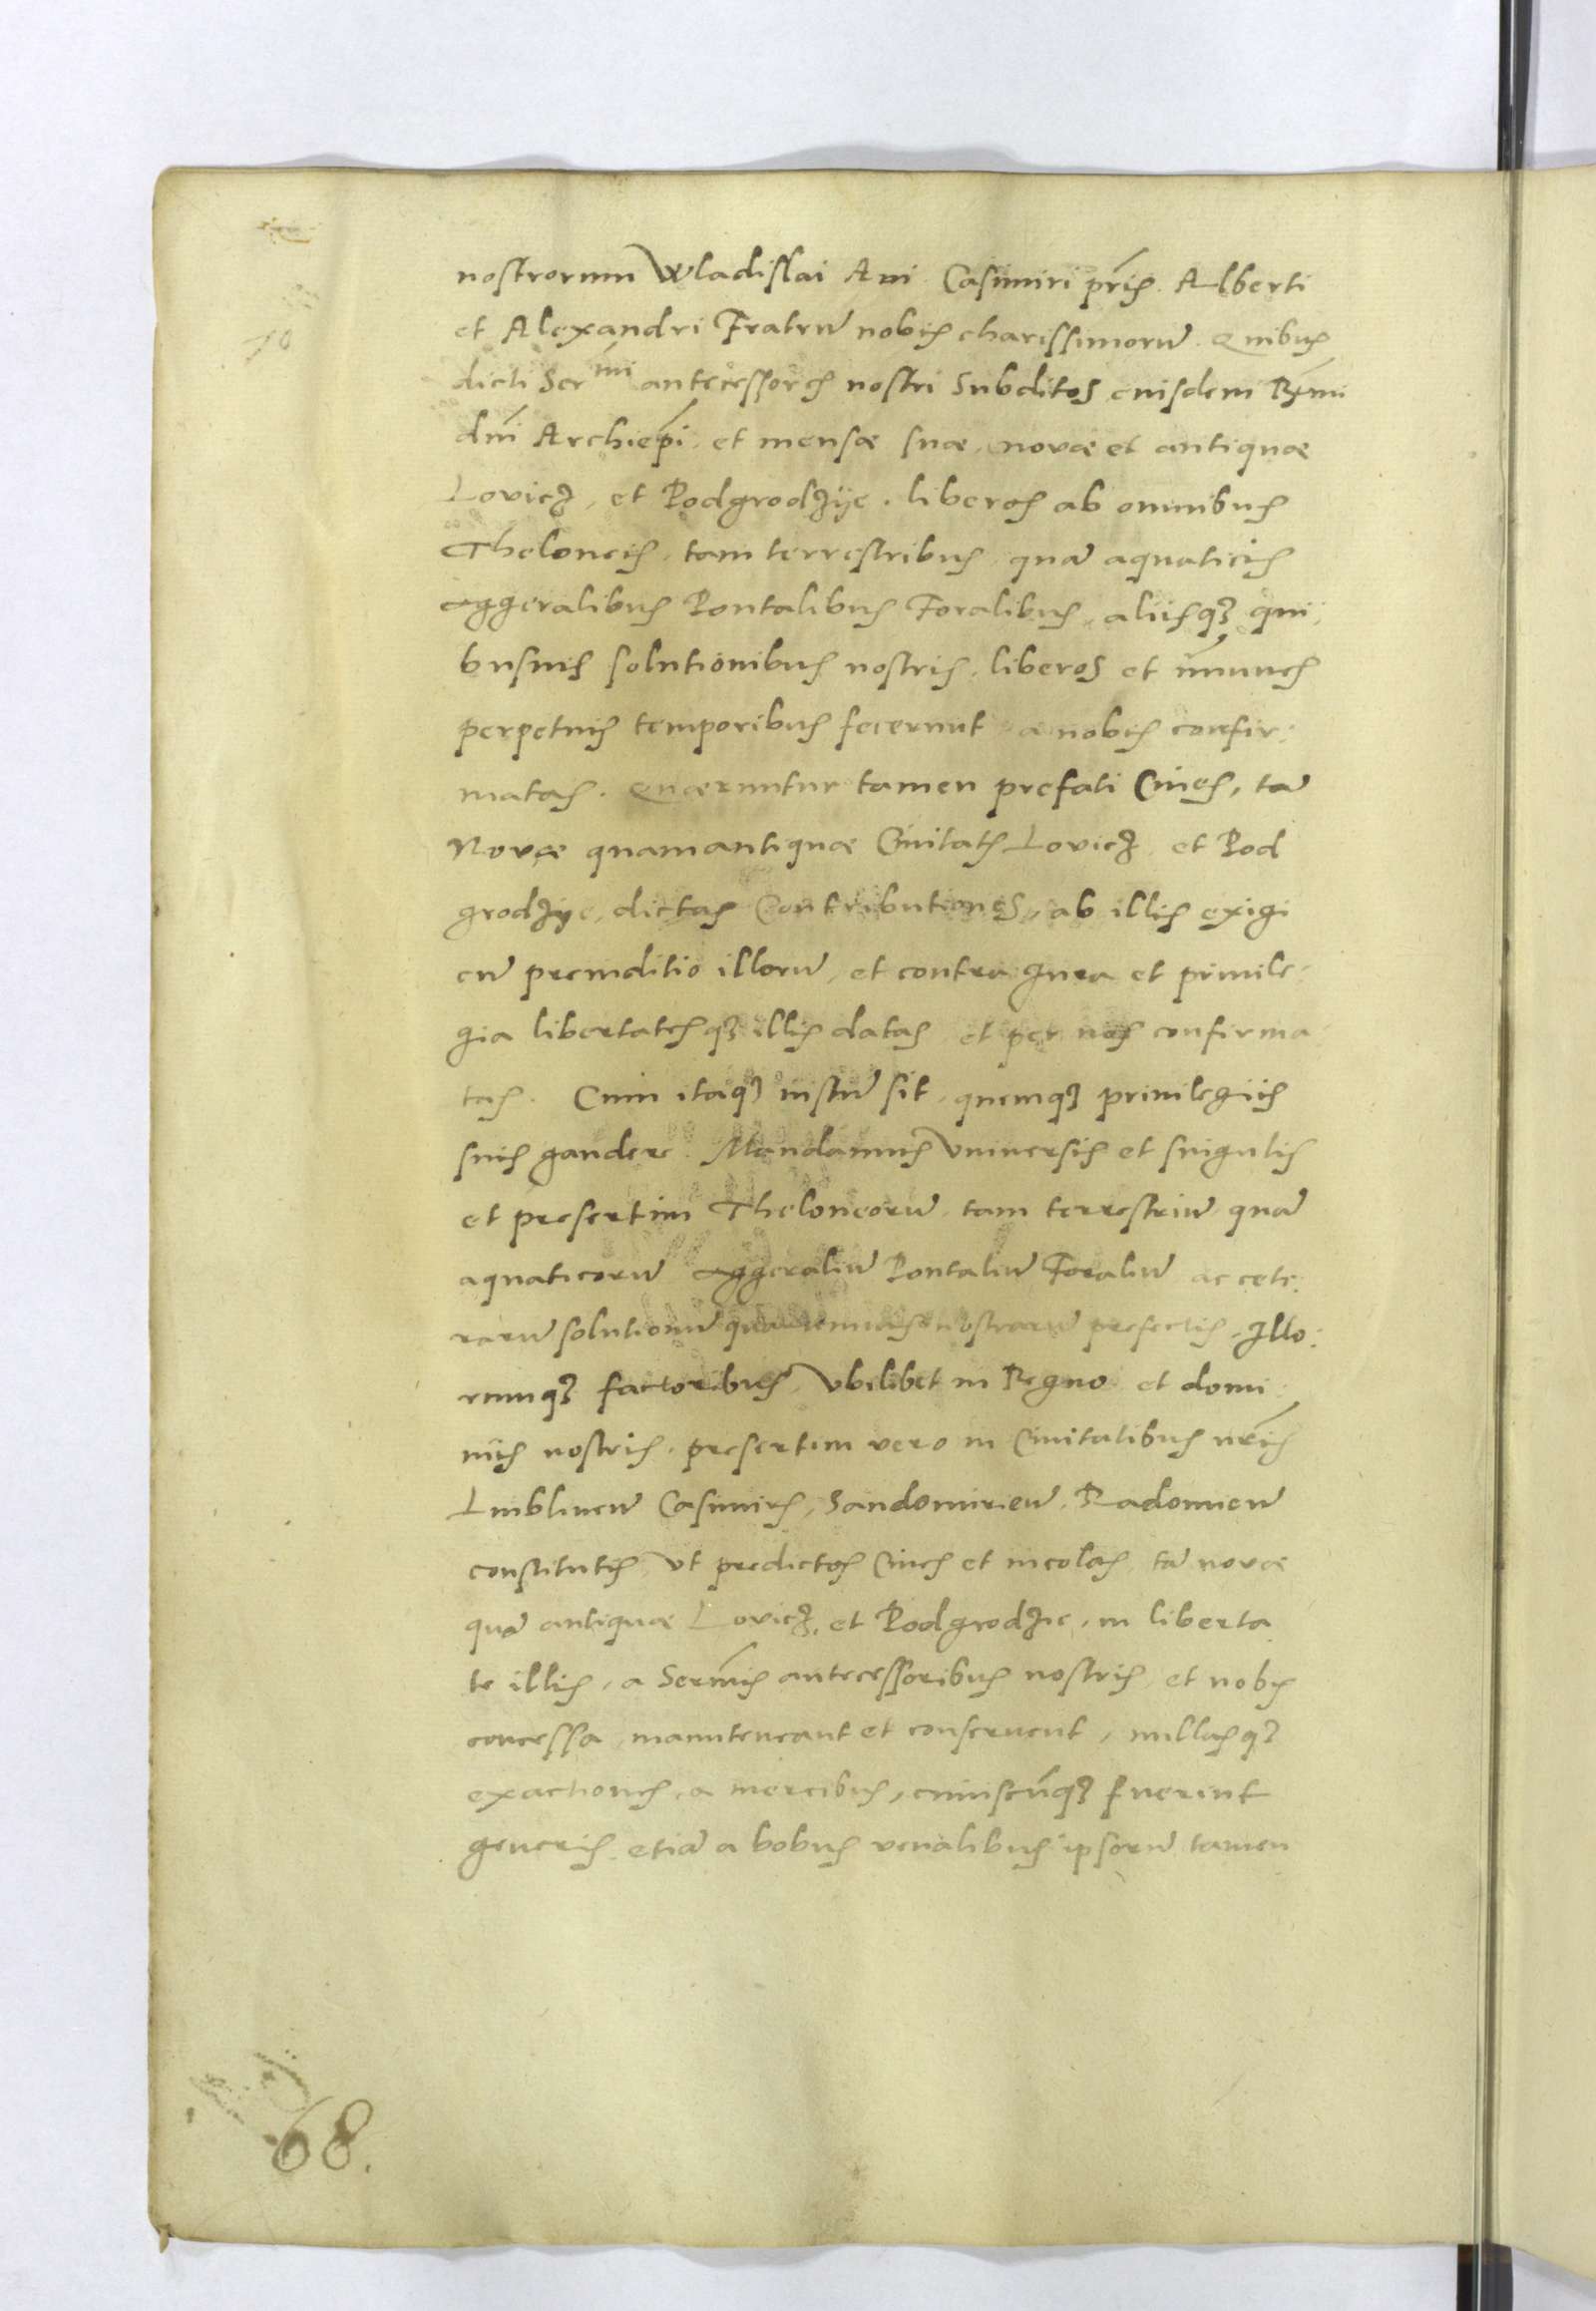 nostrorum Wladislai Aui Casimiri pris Alberti
et Alexandri Fratrū nobis charissimorū. Quibus
dicti Ser^mi antecessores nostri Subditos, euisdem Rmi
dni Archiepi, et mensæ suæ, novæ et antiquæ
Lovicz, et Podgrodzÿe, liberos ab omnibus
Theloneis, tam terrestribus, quā aquaticis
Aggeralibus Pontalibus Foralibus, aliisq3 qui
busuis solutionibus nostris, liberos et īmunes
perpetuis temporibus fecerunt a nobis confir:
matas. Quæruntur tamen prefati Ciues, tā
Novæ quam antiquæ Ciuitatis Lovicz et Pod
grodzye, dictas Contributiones, ab illis exigi
cū preiuditio illorū, et contra Jura et priuile:
gia libertatesq3 illis datas et per nos confirma
tas. Cum itaq3 iustū sit, quemq3 priuilegiis
suis gaudere. Mandamus Vniuersis et singulis
et presertim Theloneorū, tam terrestriū quā
aquaticorū Aggeraliū Pontaliū Foraliū ac cete:
rarū solutionū nostrarū prefectis, Illo:
rumq3 factoribus, Vbilibet in Regno et domi
niis nostris, presertim vero in Ciuitatibus nris
Lublineñ Casimiris, Sandomirieñ, Radomieñ
constitutis, Vt predictos Ciues et incolas, tā novæ
quā antiquæ Lovicz, et Podgrodzie, in liberta
te illis, a Sermis antecessoribus nostris, et nobis
concessa, manuteneant et conseruent, nullasq3
exactiones, a mercibus, cuiuscūq3 fuerint
generis, etiā a bobus venalibus ipsorū tamen
68.